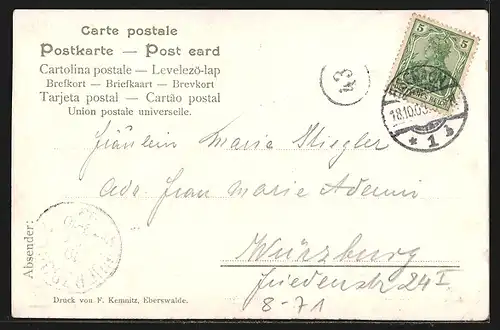 Carte postale
Postkarte — Post card
Cartolina postale — Levelező-lap
Brefkort — Briefkaart — Brevkort
Tarjeta postal — Cartão postal
Union postale universelle.
5 5
43
18.10.03
* 1 b
Fräulein Marie Stiegler
Adr. Frau Marie Ademi
Würzburg
Friedenstr 24 I
8-71
Absender:
Druck von F. Kemnitz, Eberswalde.